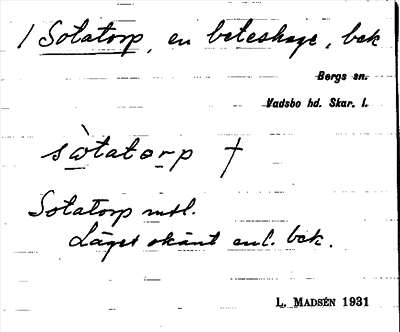 / Sotatorp, en beteshage, bek
Bergs sn.
Vadsbo hd. Skar. l.
sὼtatorp †
Sotatorp msl.
Läget okänt enl. bek.
L. MADSÉN 1931